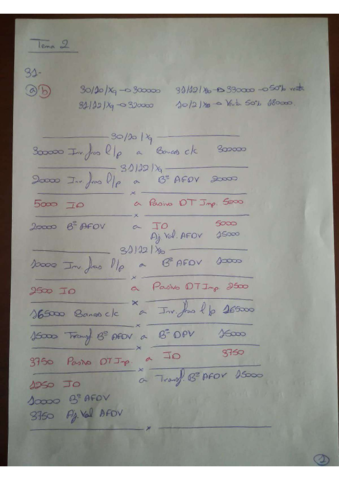 Tema 2
31-
a) b) 30/10/X9 → 300000 31/12/X10 → 330000 → 50% vta
31/12/X9 → 320000 10/2/X10 → Vta 50% 180000
30/10/X9
300000 Inv fras l/p a Bancos c/c 300000
31/12/X9
20000 Inv fras l/p a Bº AFDV 20000
x
5000 IO a Pasivo DT Imp 5000
x
20000 Bº AFDV a IO 5000
Aj Val AFDV 15000
31/12/X10
10000 Inv fras l/p a Bº AFDV 10000
x
2500 IO a Pasivo DT Imp 2500
x
165000 Bancos c/c a Inv fras l/p 165000
x
15000 Transf Bº AFDV a Bº DPV 15000
x
3750 Pasivo DT Imp a IO 3750
x
1250 IO a Transf Bº AFDV 15000
10000 Bº AFDV
3750 Aj Val AFDV
x
1